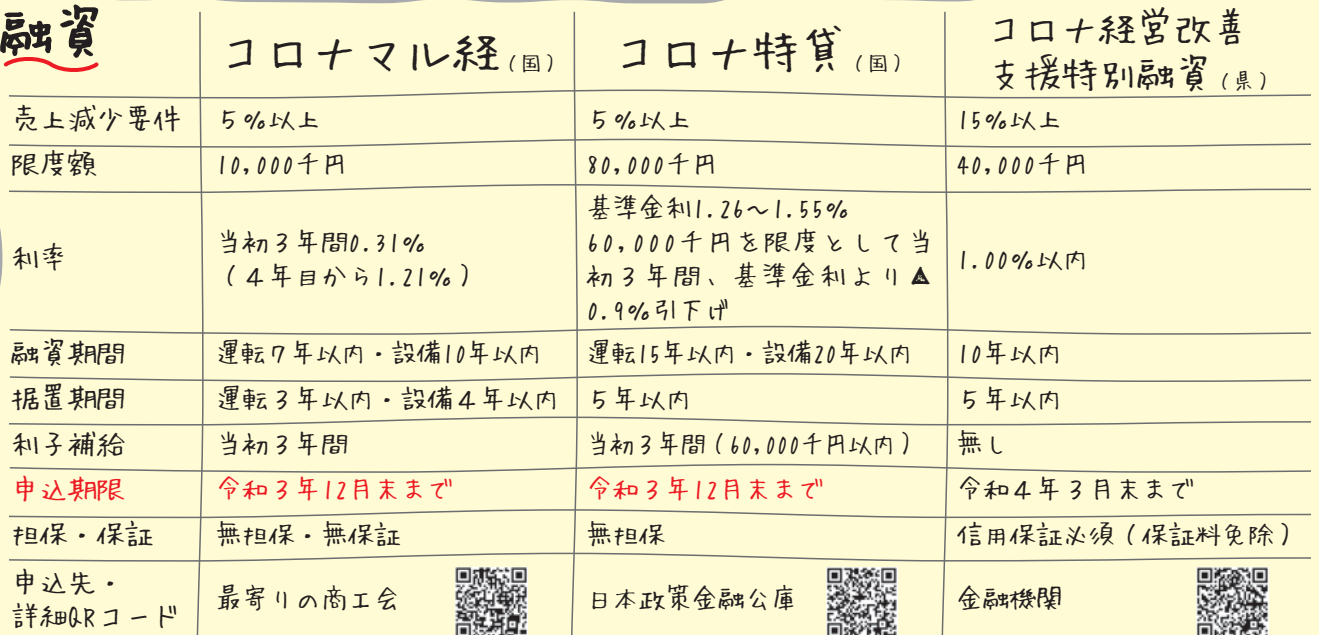 融資
コロナマル経（国）
コロナ特貸（国）
コロナ経営改善
支援特別融資（県）
売上減少要件 5％以上 5％以上 15％以上
限度額 10,000千円 80,000千円 40,000千円
利率
当初3年間0.31％
（4年目から1.21％）
基準金利1.26〜1.55％
60,000千円を限度として当
初3年間、基準金利より▲
0.9％引下げ
1.00％以内
融資期間 運転7年以内・設備10年以内 運転15年以内・設備20年以内 10年以内
据置期間 運転3年以内・設備4年以内 5年以内 5年以内
利子補給 当初3年間 当初3年間（60,000千円以内） 無し
申込期限 令和3年12月末まで 令和3年12月末まで 令和4年3月末まで
担保・保証 無担保・無保証 無担保 信用保証必須（保証料免除）
申込先・
詳細QRコード
最寄りの商工会
日本政策金融公庫
金融機関